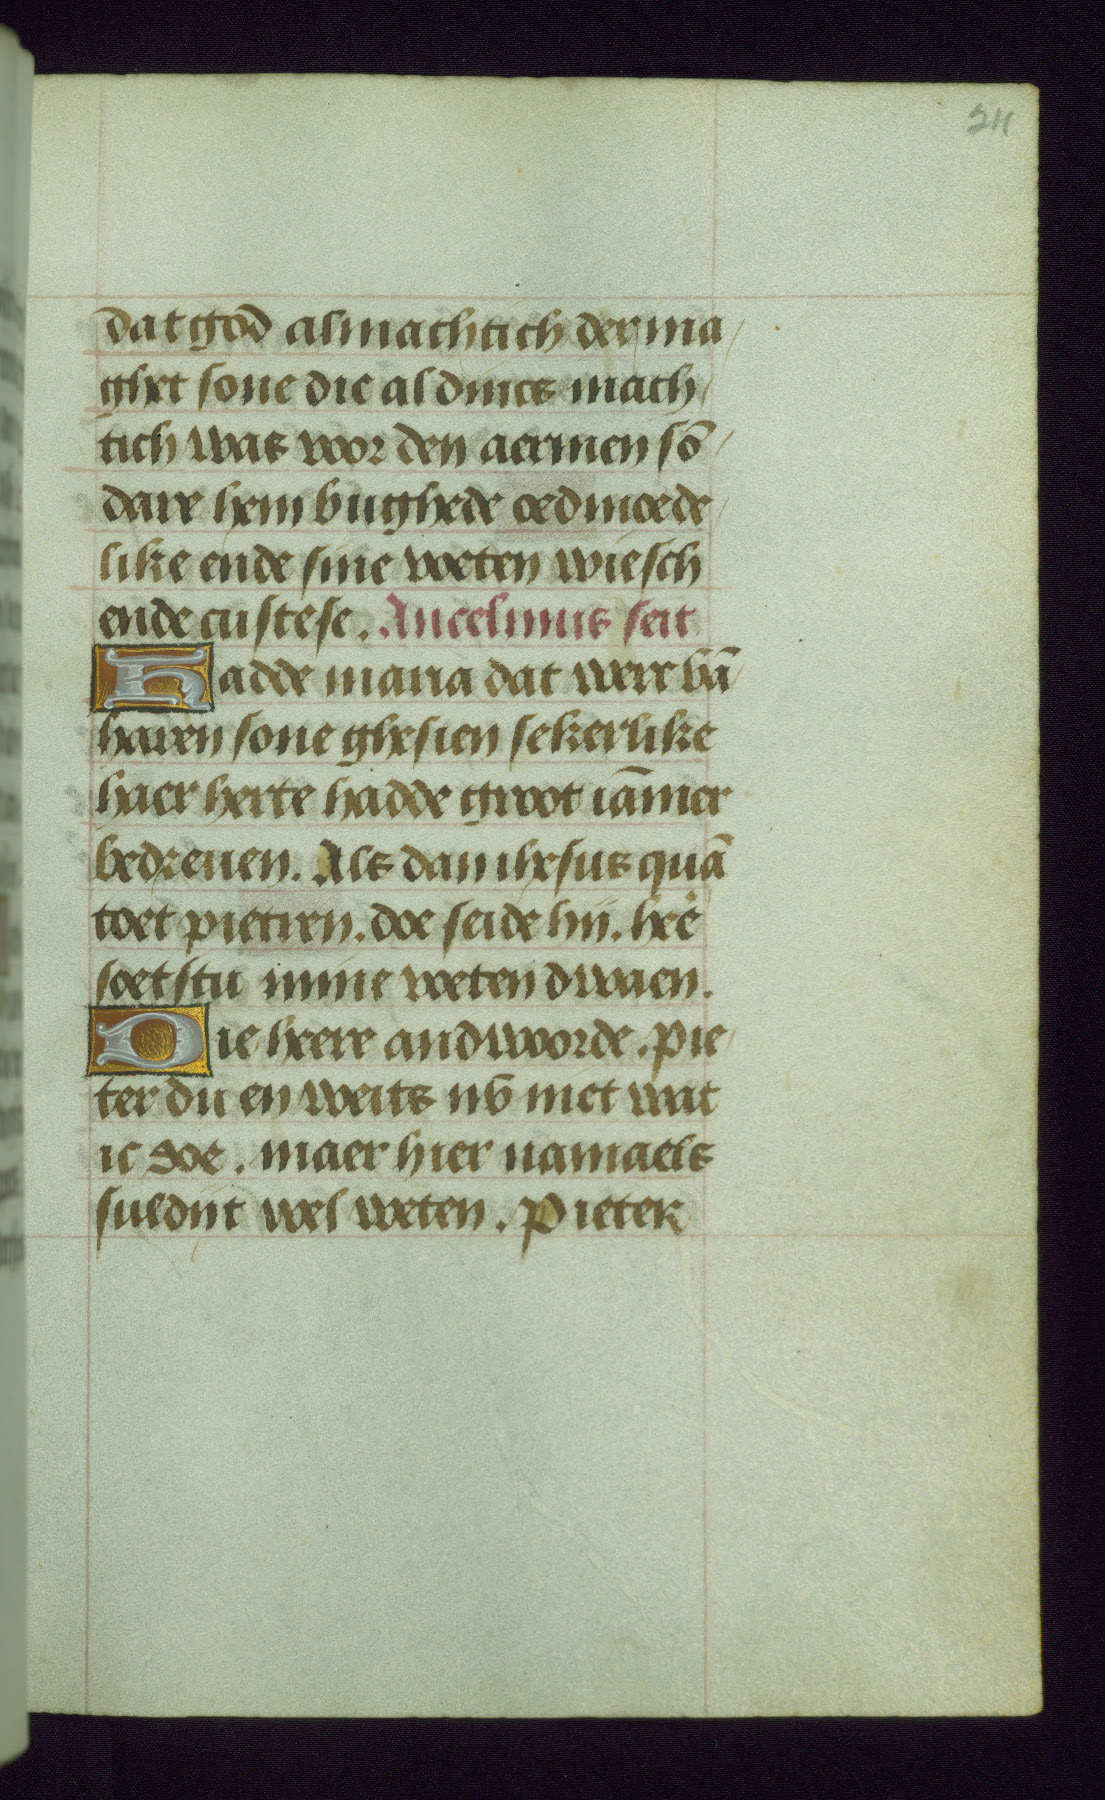 211
dat god almachtich der ma/
ghet sone die al dincs mach/
tich was voor den aermen sō/
dare hem bughede oedmoede/
like ende sine voeten wiesch
ende custese. Ancelmus seit
Hadde maria dat werc vā/
haren sone ghesien sekerlike
haer herte hadde groot iāmer
bedreuen. Als dan ihesus quā
toet pietren. doe seide hij. heē
soetstu mine voeten dwaen.
Die heere andwoorde. Pie/
ter du en weits nv niet wat
ic doe. maer hier namaels
suldijt wel weten. Pieter